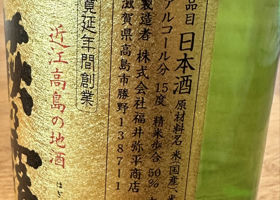 品目 日本酒 原材料名 米(国産)、米
アルコール分 15度 精米歩合 50%
製造者 株式会社 福井弥平商店
滋賀県高島市勝野1387-1
寛延年間創業
近江高島の地酒
萩乃露
はぎ